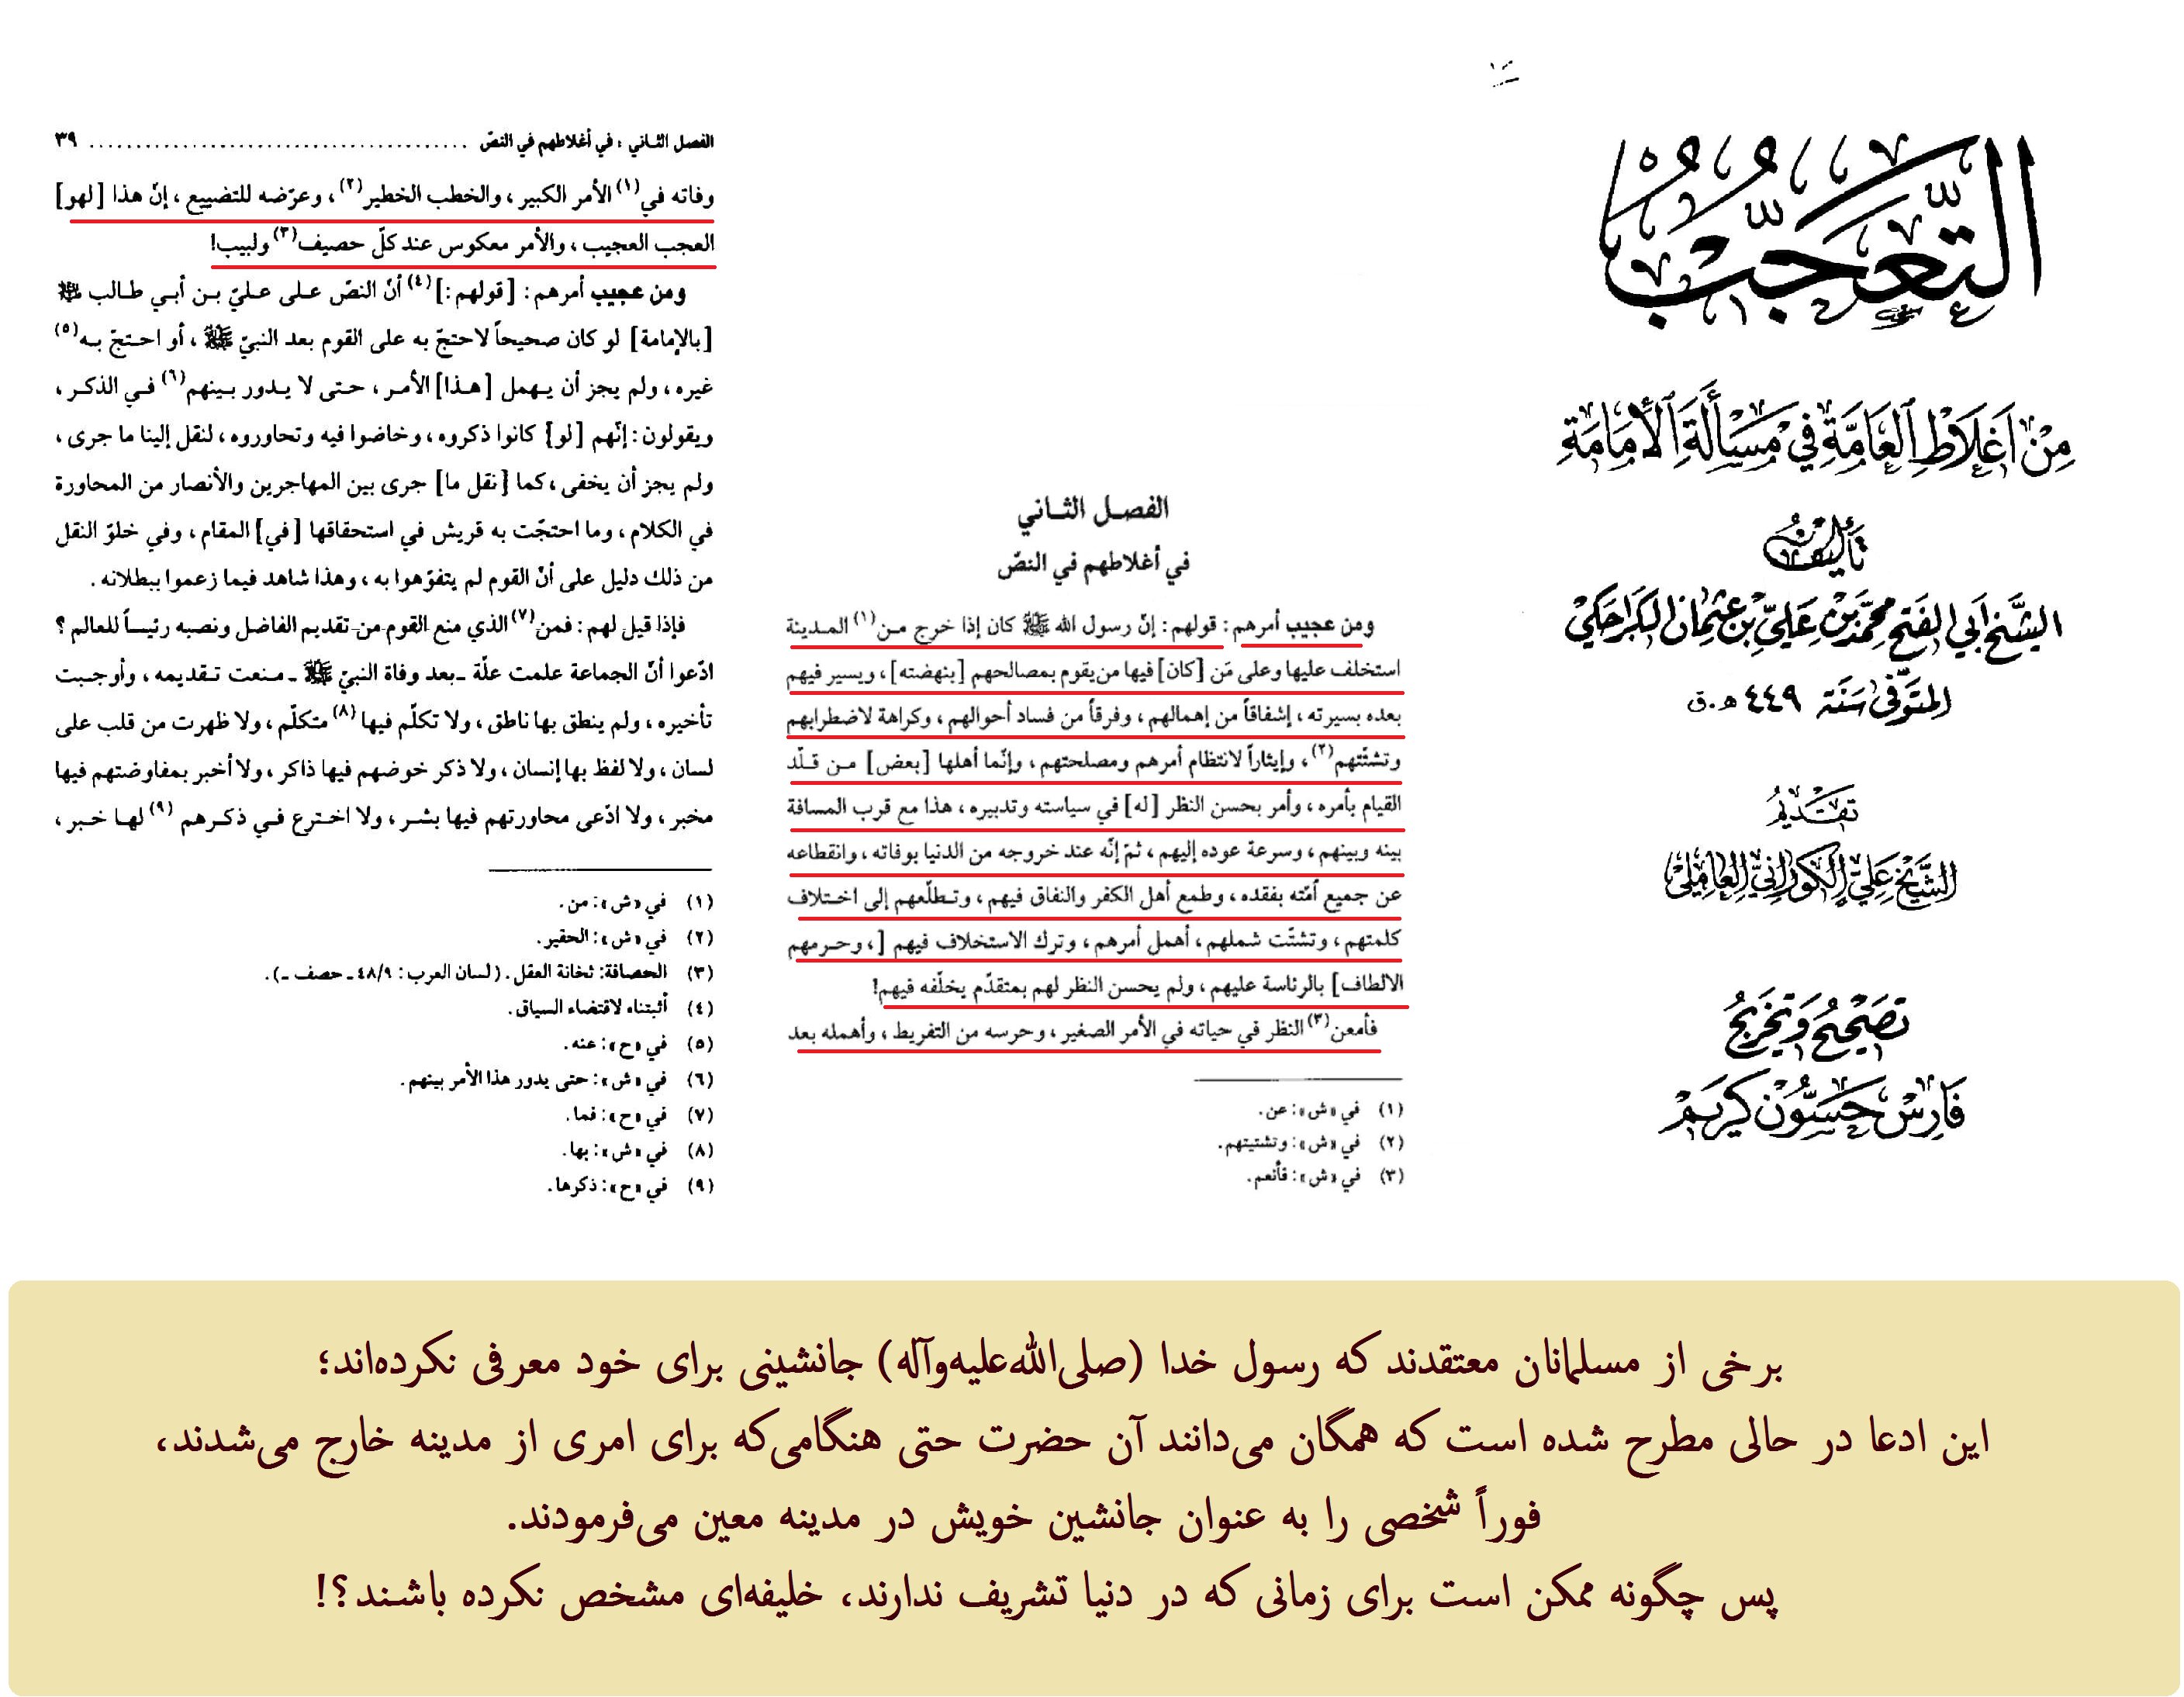 التعجب
من أغلاط العامة في مسألة الإمامة
تأليف
الشيخ أبي الفتح محمد بن علي بن عثمان الكراجكي
المتوفى سنة ٤٤٩ هـ.ق
تقديم
الشيخ علي الكوراني العاملي
تصحيح وتخريج
فارس حسون كريم
الفصل الثاني
في أغلاطهم في النصّ
ومن عجيب أمرهم : قولهم : إنّ رسول الله ﷺ كان إذا خرج من(١) المدينة
استخلف عليها وعلى مَن [كان] فيها من يقوم بمصالحهم [بنهضته] ، ويسير فيهم
بعده بسيرته ، إشفاقاً من إهمالهم ، وفرقاً من فساد أحوالهم ، وكراهة لاضطرابهم
وتشتّتهم(٢) ، وإيثاراً لانتظام أمرهم ومصلحتهم ، وإنّما أهلها [بعض] من قلّد
القيام بأمره ، وأمر بحسن النظر [له] في سياسته وتدبيره ، هذا مع قرب المسافة
بينه وبينهم ، وسرعة عوده إليهم ، ثمّ إنّه عند خروجه من الدنيا بوفاته ، وانقطاعه
عن جميع أمّته بفقده ، وطمع أهل الكفر والنفاق فيهم ، وتطلّعهم إلى اختلاف
كلمتهم ، وتشتّت شملهم ، أهمل أمرهم ، وترك الاستخلاف فيهم [، وحرمهم
الالطاف] بالرئاسة عليهم ، ولم يحسن النظر لهم بمتقدّم يخلّفه فيهم!
فأمعن(٣) النظر في حياته في الأمر الصغير ، وحرسه من التفريط ، وأهمله بعد
(١) في «ش»: عن.
(٢) في «ش»: وتشتيتهم.
(٣) في «ش»: فأنعم.
الفصل الثاني : في أغلاطهم في النصّ ........................................ ٣٩
وفاته في(١) الأمر الكبير ، والخطب الخطير(٢) ، وعرّضه للتضييع ، إنّ هذا [لهو]
العجب العجيب ، والأمر معكوس عند كلّ حصيف(٣) ولبيب!
ومن عجيب أمرهم : [قولهم:](٤) أنّ النصّ على عليّ بن أبي طالب ﷺ
[بالإمامة] لو كان صحيحاً لاحتجّ به على القوم بعد النبيّ ﷺ ، أو احتجّ به(٥)
غيره ، ولم يجز أن يهمل [هذا] الأمر ، حتى لا يدور بينهم(٦) في الذكر ،
ويقولون : إنّهم [لو] كانوا ذكروه ، وخاضوا فيه وتحاوروه ، لنقل إلينا ما جرى ،
ولم يجز أن يخفى ، كما [نقل ما] جرى بين المهاجرين والأنصار من المحاورة
في الكلام ، وما احتجّت به قريش في استحقاقها [في] المقام ، وفي خلوّ النقل
من ذلك دليل على أنّ القوم لم يتفوّهوا به ، وهذا شاهد فيما زعموا ببطلانه .
فإذا قيل لهم : فمن(٧) الذي منع القوم من تقديم الفاضل ونصبه رئيساً للعالم ؟
ادّعوا أنّ الجماعة علمت علّة ـ بعد وفاة النبيّ ﷺ ـ منعت تقديمه ، وأوجبت
تأخيره ، ولم ينطق بها ناطق ، ولا تكلّم فيها(٨) متكلّم ، ولا ظهرت من قلب على
لسان ، ولا لفظ بها إنسان ، ولا ذكر خوضهم فيها ذاكر ، ولا أخبر بمفاوضتهم فيها
مخبر ، ولا ادّعى محاورتهم فيها بشر ، ولا اخترع في ذكرهم(٩) لها خبر ،
(١) في «ش»: من.
(٢) في «ش»: الحقير.
(٣) الحصافة: ثخانة العقل. (لسان العرب : ٤٨/٩ ـ حصف ـ).
(٤) أثبتناه لاقتضاء السياق.
(٥) في «ح»: عنه.
(٦) في «ش»: حتى يدور هذا الأمر بينهم.
(٧) في «ح»: فما.
(٨) في «ش»: بها.
(٩) في «ح»: ذكرها.
برخی از مسلمانان معتقدند که رسول خدا (صلی‌الله‌علیه‌وآله) جانشینی برای خود معرفی نکرده‌اند؛
این ادعا در حالی مطرح شده است که همگان می‌دانند آن حضرت حتی هنگامی‌که برای امری از مدینه خارج می‌شدند،
فوراً شخصی را به عنوان جانشین خویش در مدینه معین می‌فرمودند.
پس چگونه ممکن است برای زمانی که در دنیا تشریف ندارند، خلیفه‌ای مشخص نکرده باشند؟!